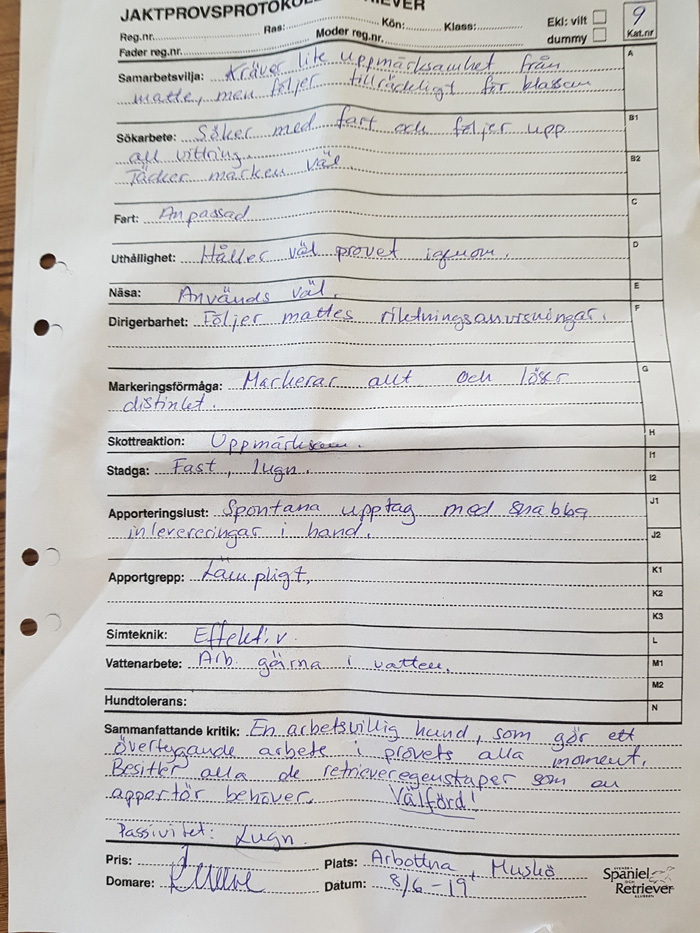 JAKTPROVSPROTOKOLL RETRIEVER
9
Reg.nr. Ras: Kön: Klass: Ekl: vilt
Fader reg.nr. Moder reg.nr. dummy Kat.nr
Samarbetsvilja: Kräver lite uppmärksamhet från A
matte, men följer tillräckligt för klassen
Sökarbete: Söker med fart och följer upp B1
all vittring.
Täcker marken väl B2
Fart: Anpassad C
Uthållighet: Håller väl provet igenom. D
Näsa: Används väl. E
Dirigerbarhet: Följer mattes riktningsanvisningar. F
Markeringsförmåga: Markerar allt och löser G
distinkt.
Skottreaktion: Uppmärksam. H
Stadga: Fast, lugn. I1
I2
Apporteringslust: Spontana upptag med snabba J1
inlevereringar i hand. J2
Apportgrepp: Lämpligt, K1
K2
K3
Simteknik: Effektiv L
Vattenarbete: Arb. gärna i vatten. M1
M2
Hundtolerans: N
Sammanfattande kritik: En arbetsvillig hund, som gör ett
övertygande arbete i provets alla moment.
Besitter alla de retrieveregenskaper som en
apportör behöver. Välförd!
Passivitet: Lugn.
Pris: 1 Plats: Arbottna, Muskö
Domare: Datum: 8/6-19
Spaniel
Retriever
KLUBBEN